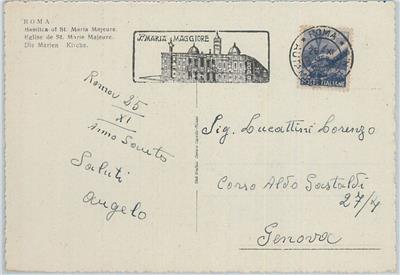 ROMA
Basilica of St. Maria Majeure.
Eglise de St. Marie Majeure.
Die Marien Kirche.
Sta MARIA MAGGIORE
ROMA
Roma 25
XI
Anno Santo
Saluti
Angelo
Sig. Lucattini Lorenzo
Corso Aldo Gastaldi
27/4
Genova